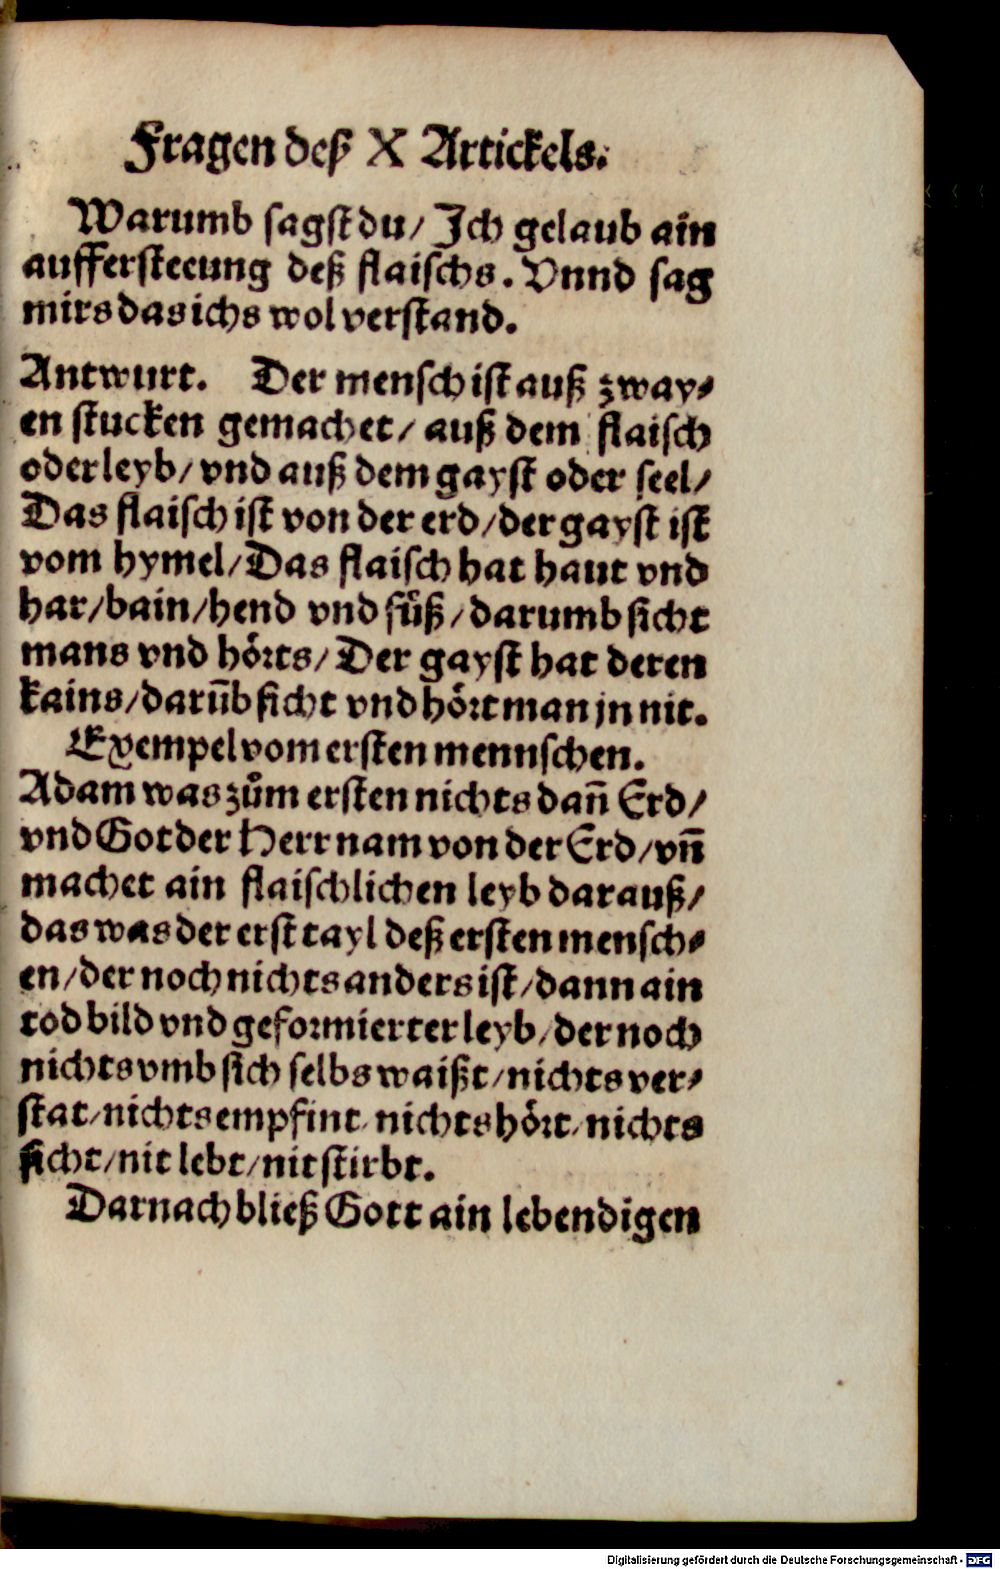 Fragen deß X Artickels.
Warumb sagst du/ Ich gelaub ain
auffersteeung deß flaischs. Vnnd sag
mirs das ichs wol verstand.
Antwurt. Der mensch ist auß zway⸗
en stucken gemachet/ auß dem flaisch
oder leyb/ vnd auß dem gayst oder seel/
Das flaisch ist von der erd/ der gayst ist
vom hymel/ Das flaisch hat haut vnd
har/ bain/ hend vnd fuͤß/ darumb sicht
mans vnd hoͤrts/ Der gayst hat deren
kains/ darum̄b sicht vnd hoͤrt man jn nit.
Exempel vom ersten mennschen.
Adam was zuͦm ersten nichts dañ Erd/
vnd Got der Herr nam von der Erd/ vñ
machet ain flaischlichen leyb darauß/
das was der erst tayl deß ersten mensch⸗
en/ der noch nichts anders ist/ dann ain
tod bild vnd geformierter leyb/ der noch
nichts vmb sich selbs waißt/ nichts ver⸗
stat/ nichts empfint/ nichts hoͤrt/ nichts
sicht/ nit lebt/ nit stirbt.
Darnach bließ Gott ain lebendigen
Digitalisierung gefördert durch die Deutsche Forschungsgemeinschaft - DFG